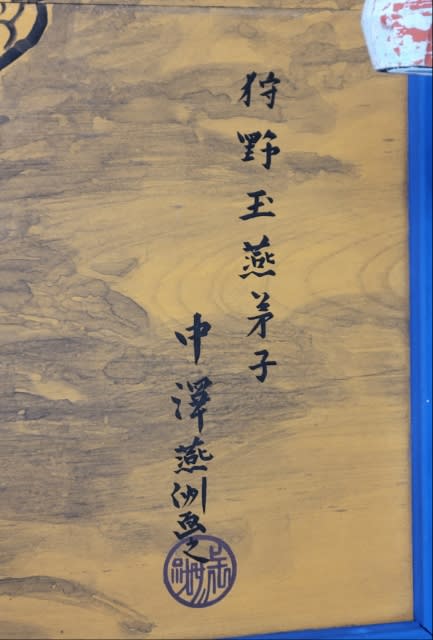 狩野玉燕弟子
中澤燕洲画之